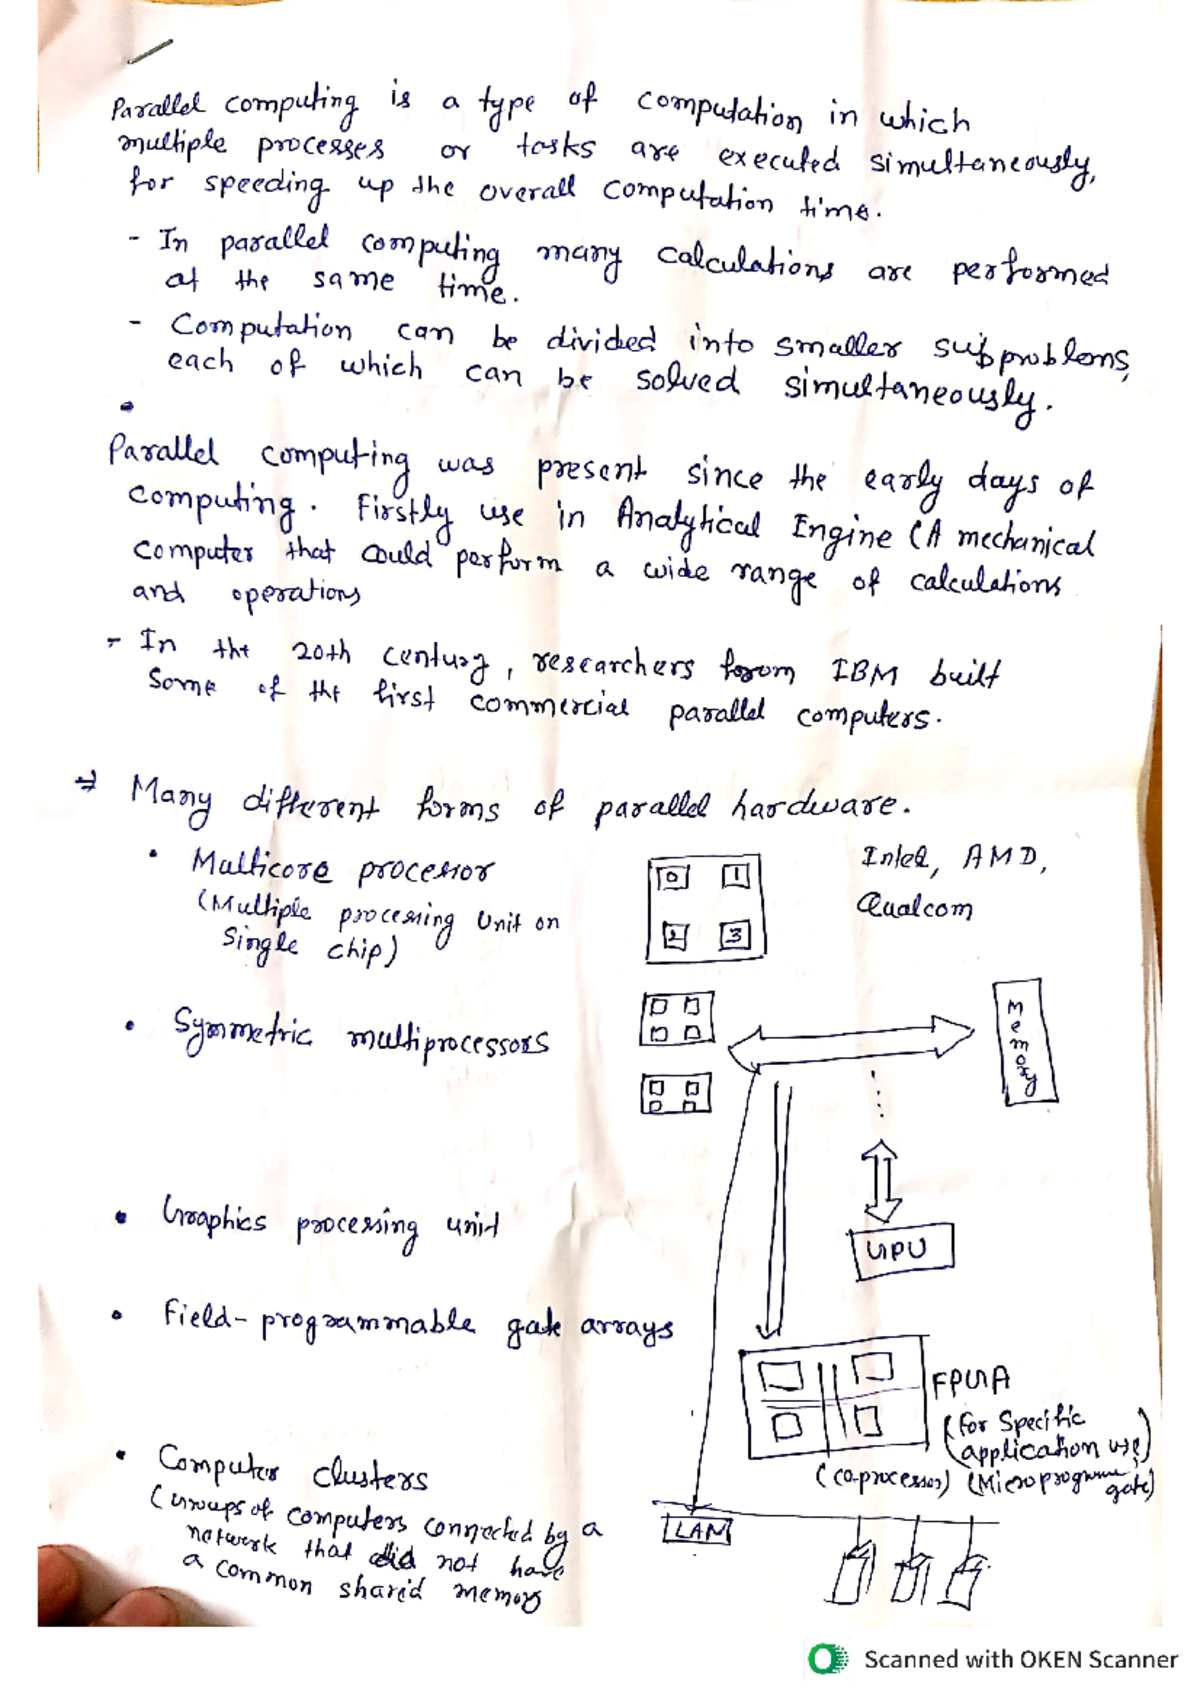 Parallel computing is a type of computation in which
multiple processes or tasks are executed simultaneously,
for speeding up the overall computation time.
- In parallel computing many calculations are performed
at the same time.
- Computation can be divided into smaller subproblems,
each of which can be solved simultaneously.
Parallel computing was present since the early days of
computing. Firstly use in Analytical Engine (A mechanical
computer that could perform a wide range of calculations
and operations
- In the 20th century, researchers from IBM built
Some of the first commercial parallel computers.
⇒ Many different forms of parallel hardware.
• Multicore processor
(Multiple processing Unit on
Single chip)
0 1
2 3
Intel, AMD,
Qualcom
• Symmetric multiprocessors
Memory
• Graphics processing unit
GPU
• Field-programmable gate arrays
FPGA
(for Specific
application use)
(co-processor) (Microprogramme
gate)
• Computer clusters
(Groups of computers connected by a
network that did not have
a common shared memory
LAN
Scanned with OKEN Scanner